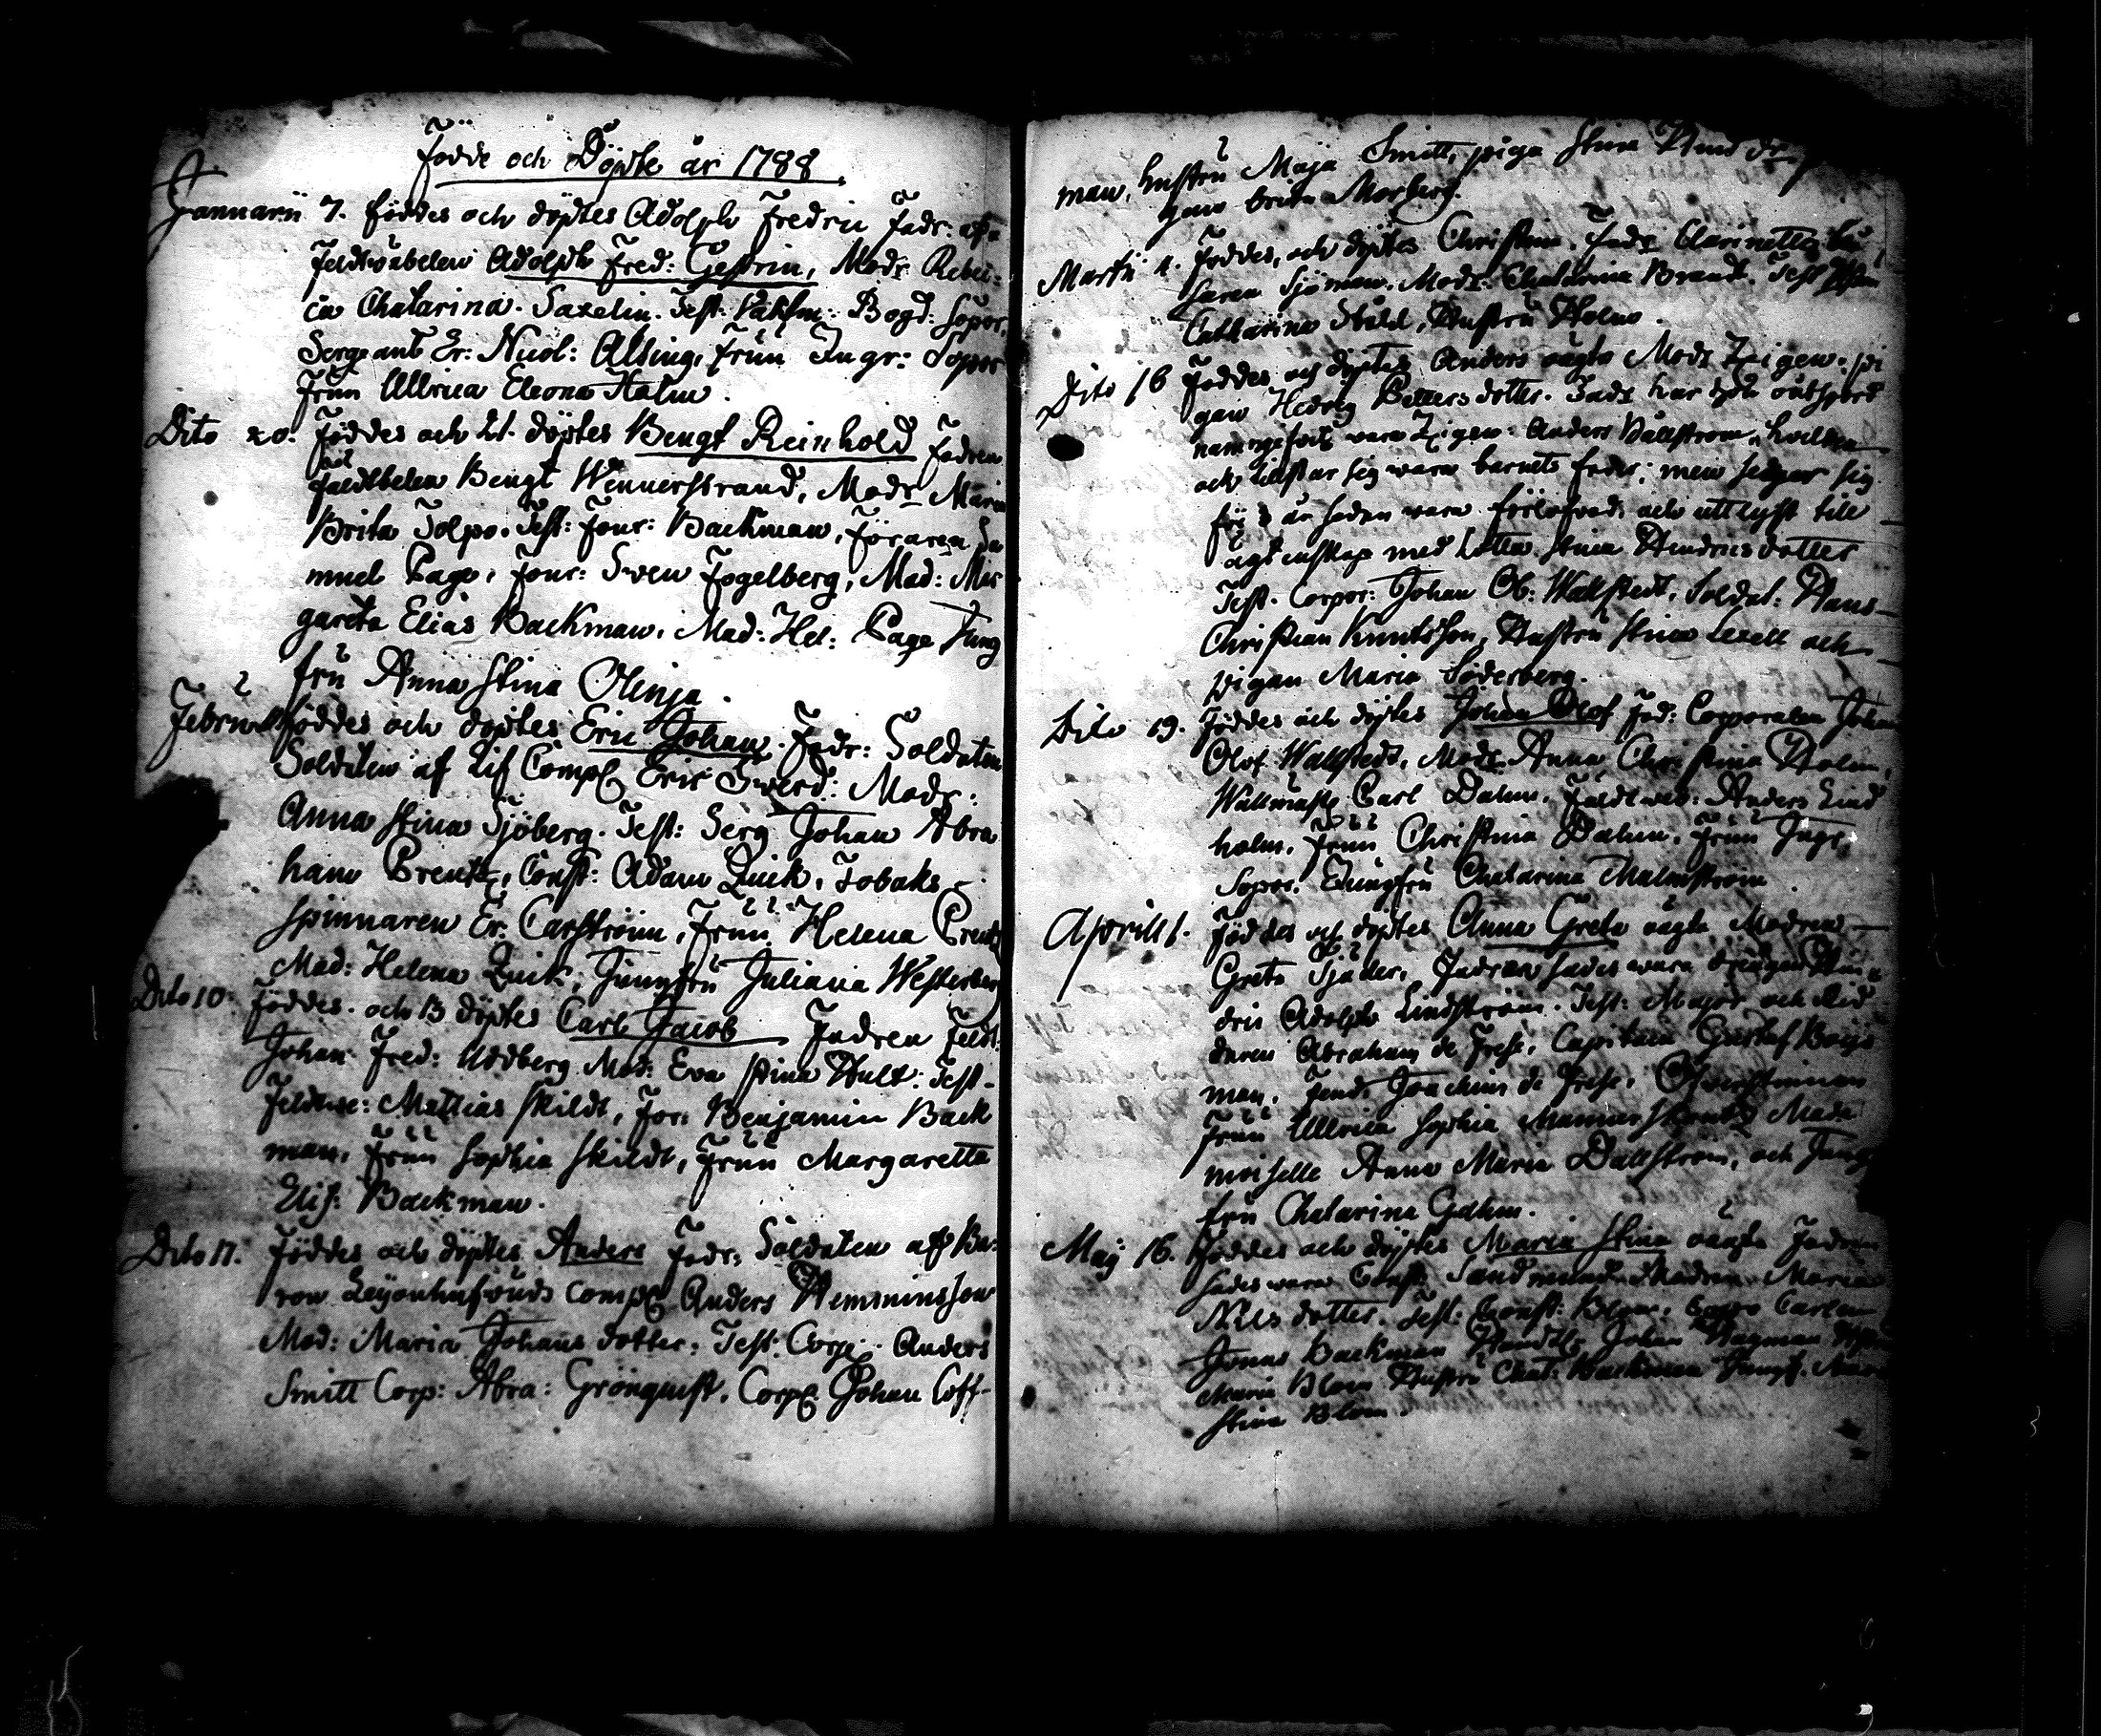 Födde och Döpte år 1788.
Januarii 7. föddes och döptes Adolph Fredric Fadr:
Feldtväbelen Adolph Fred: Gestrin, Modr Rebec:
ca Chatarina Saxelin. Test: Bogd: Sopor,
Sergeant Er: Nicol: Alsing, fruu Ingr: Sopor
fruu Ullrica Eleona Halm.
Dito 20. föddes och 21. döptes Bengt Reinhold Fadren
Bengt Wennerstrand, Modr Maria
Brita Tolpo. Test: Four: Backman, föraren Sa
muel Page, Four: Swen Fogelberg, Mad: Mar
gareta Elias Backman, Mad: Hel: Page Jung
fru Anna Stina Olinja.
Februa föddes och döptes Eric Johan. Fadr: Soldaten
Soldaten af Lif Comp Eric Swerd: Modr:
Anna Stina Sjöberg. Test: Serg Johan Abra
ham Brentz, Const: Adam Quick, Tobaks
spinnaren Er: Carström, fruu Helena Brentz
Mad: Helena Quick, Jungfru Juliana Westerberg
Dito 10. föddes och 13 döptes Carl Jacob Fadren Feldt:
Johan Fred: Uddberg Mod: Eva Stina Hult: Test-
Mattias Skildt, For: Benjamin Back
man, fruu Sophia Skildt, fruu Margaretta
Elis: Backman.
Dito 17. föddes och döptes Anders Fadr: Soldaten af Ba:
ron Leyonhufvuds Comp Anders Hemminsson
Mod: Maria Johans dotter: Test: Corp: Anders
Smitt Corp: Abra: Grönqvist, Corp Johan Coff-
man, hustru Maja Smitt, piga Stina
gan Brita Morberg.
Martii föddes, och döptes Christina, Fadr Clarinettb
Sjöman. Modr: Chatarina Brandt. Test
Catharina Ståhl, Hustru Holm.
Dito 16 föddes och döptes Anders oägta Modr pi
gan Hedvig Petters dotter. Fadr har
vara Anders Källström, hvilken
och tillstår sig wara barnets fader; men säger sig
för 3 år sedan wara förlofvad, och uttlyst till
ägtenskap med Lotta Stina Hendricsdotter
Test. Corpor: Johan Ol: Wallstedt, Soldat: Hans
Christian Knutsson, Hustru Stina Lexell och
pigan Maria Söderberg.
Dito 19. föddes och döptes Johan Olof Fad: Corporalen Johan
Olof Wallstedt, Modr Anna Christina Holm,
Carl Dahm, Anders Lind
holm, fruu Christina Dahm, fruu Ingr:
Sopor. Jungfru Chatarina Malmström
Aprill 1. föddes och döptes Anna Greta oägta Modren
Greta Sjäder, Fadren sades wara drengen
dric Adolph Lindström. Test: Major och Rid
daren Abraham de Frese, Capitain Gustaf Boije
man, Joachim de Frese, Öfwerstinnan
fruu Ullrica Sophia Mada
moiselle Anna Maria Dallström, och Jung
fru Chatarina Gahm.
Maij 16. föddes och döptes Maria Stina oägta Fadren
sades wara Const: Sandmund Modren Maria
Nils dotter. Test: Const: Blom, Corpo Carlen
Jonas Backman Johan Hagman
Maria Blom Hustru Chat: Backman Jungf: Maria
Stina Blom.